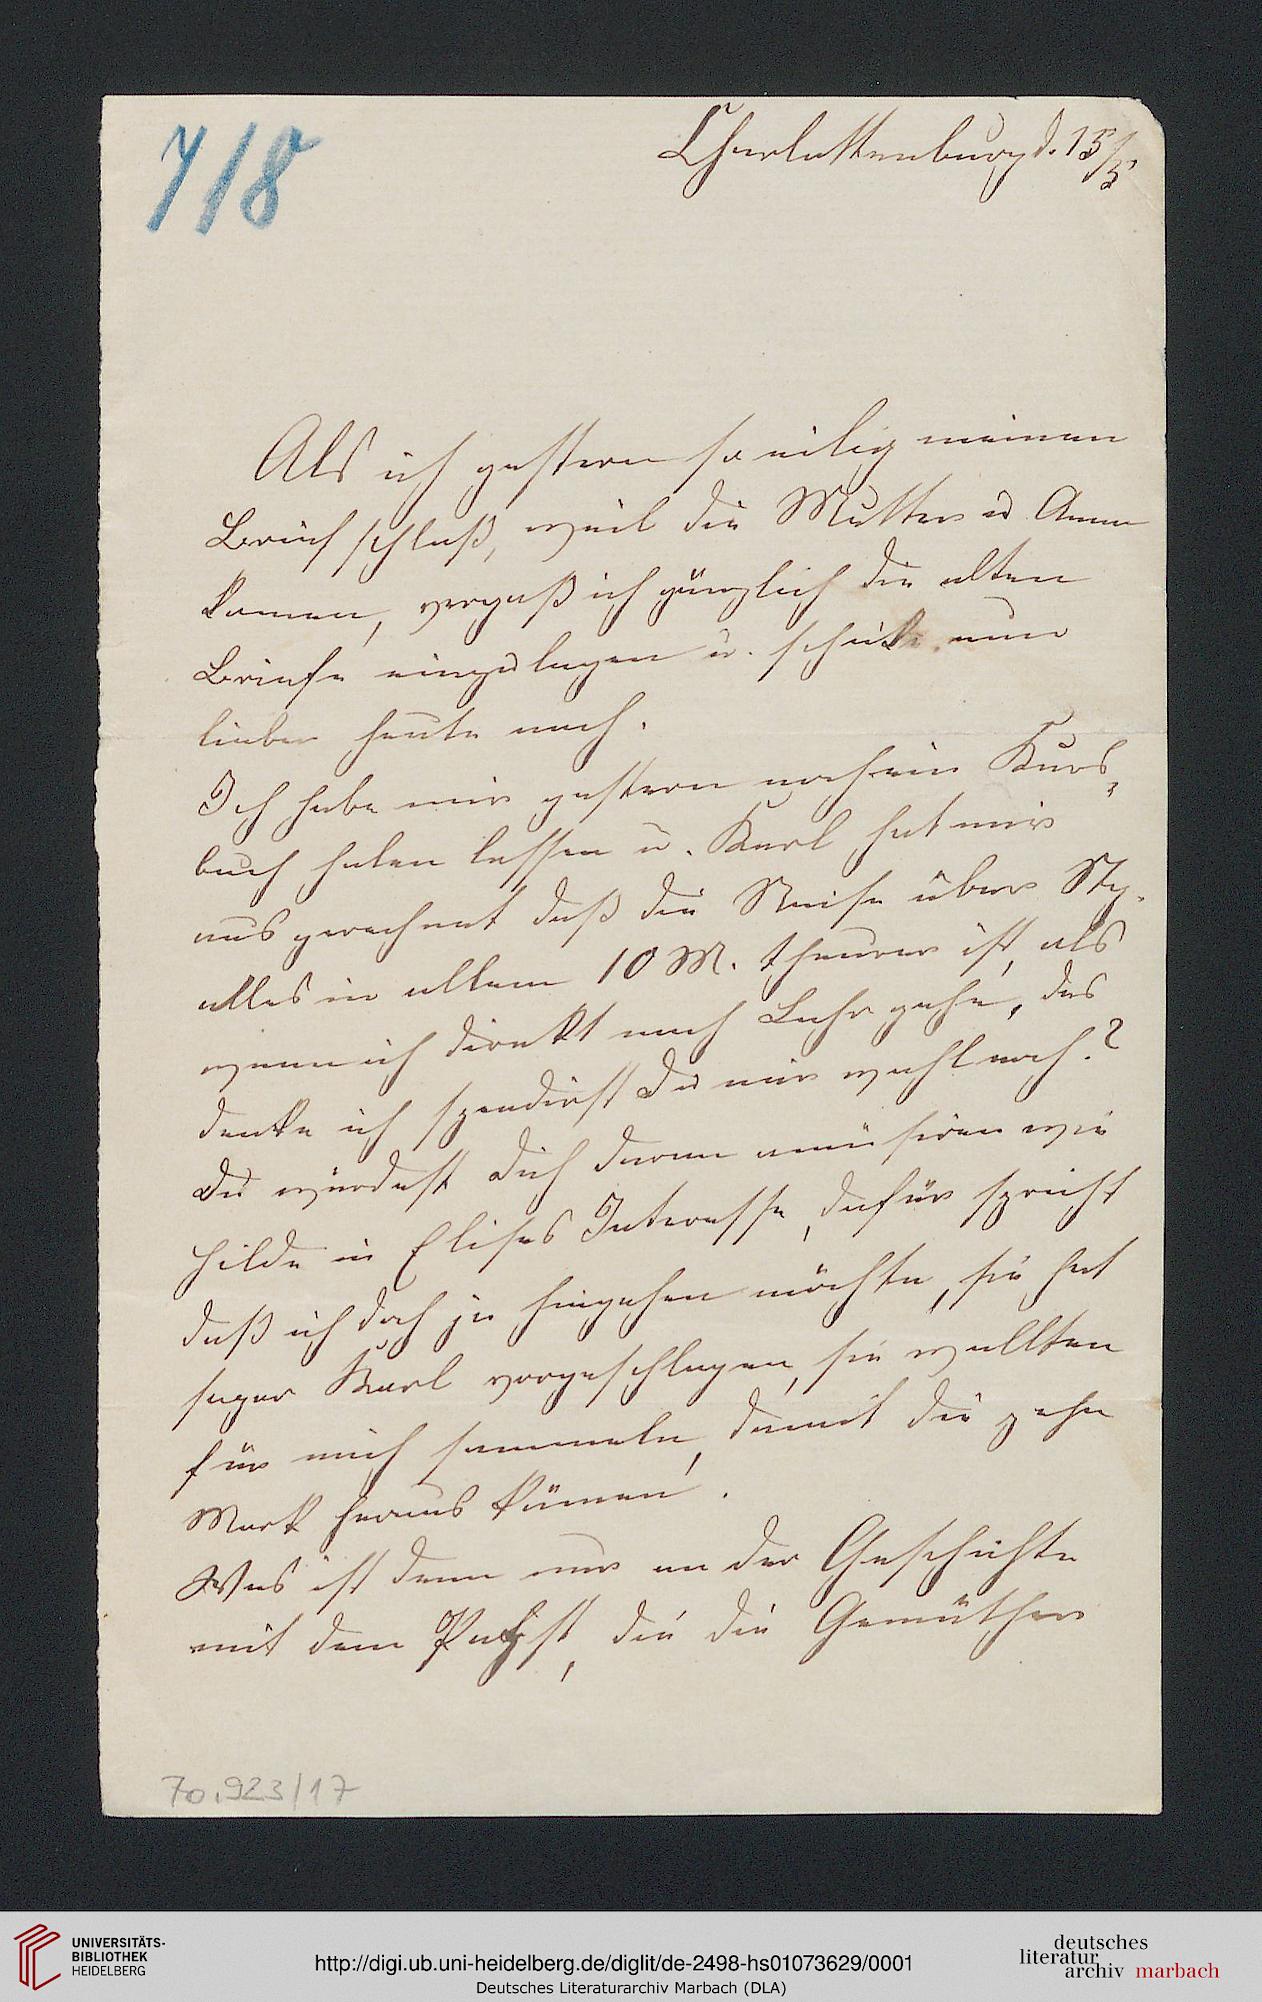 718
Charlottenburg d. 15/5
Als ich gestern so eilig meinen
Brief schloß, weil die Mutter u Anna
kamen, vergaß ich gänzlich die alten
Briefe einzulegen u. schicke nun
lieber heute nach.
Ich habe mir gestern noch ein Kurs-
buch holen lassen u. Karl hat mir
aus gerechnet daß die Reise über
alles in allem 10 M. theurer ist, als
wenn ich direkt nach Lahr gehe, das
denke ich spendirst Du mir wohl noch?
Du würdest Dich daran amüsiren wie
Hilde in Elises Interesse, dafür spricht
daß ich doch ja hingehen möchte, sie hat
sogar Karl vorgeschlagen, sie wollten
für mich sammeln, damit die zehn
Mark heraus kämen.
Was ist denn nur an der Geschichte
mit dem Pabst, die die Gemüther
70.923/17
UNIVERSITÄTS-
BIBLIOTHEK
HEIDELBERG
http://digi.ub.uni-heidelberg.de/diglit/de-2498-hs01073629/0001
Deutsches Literaturarchiv Marbach (DLA)
deutsches
literatur
archiv marbach